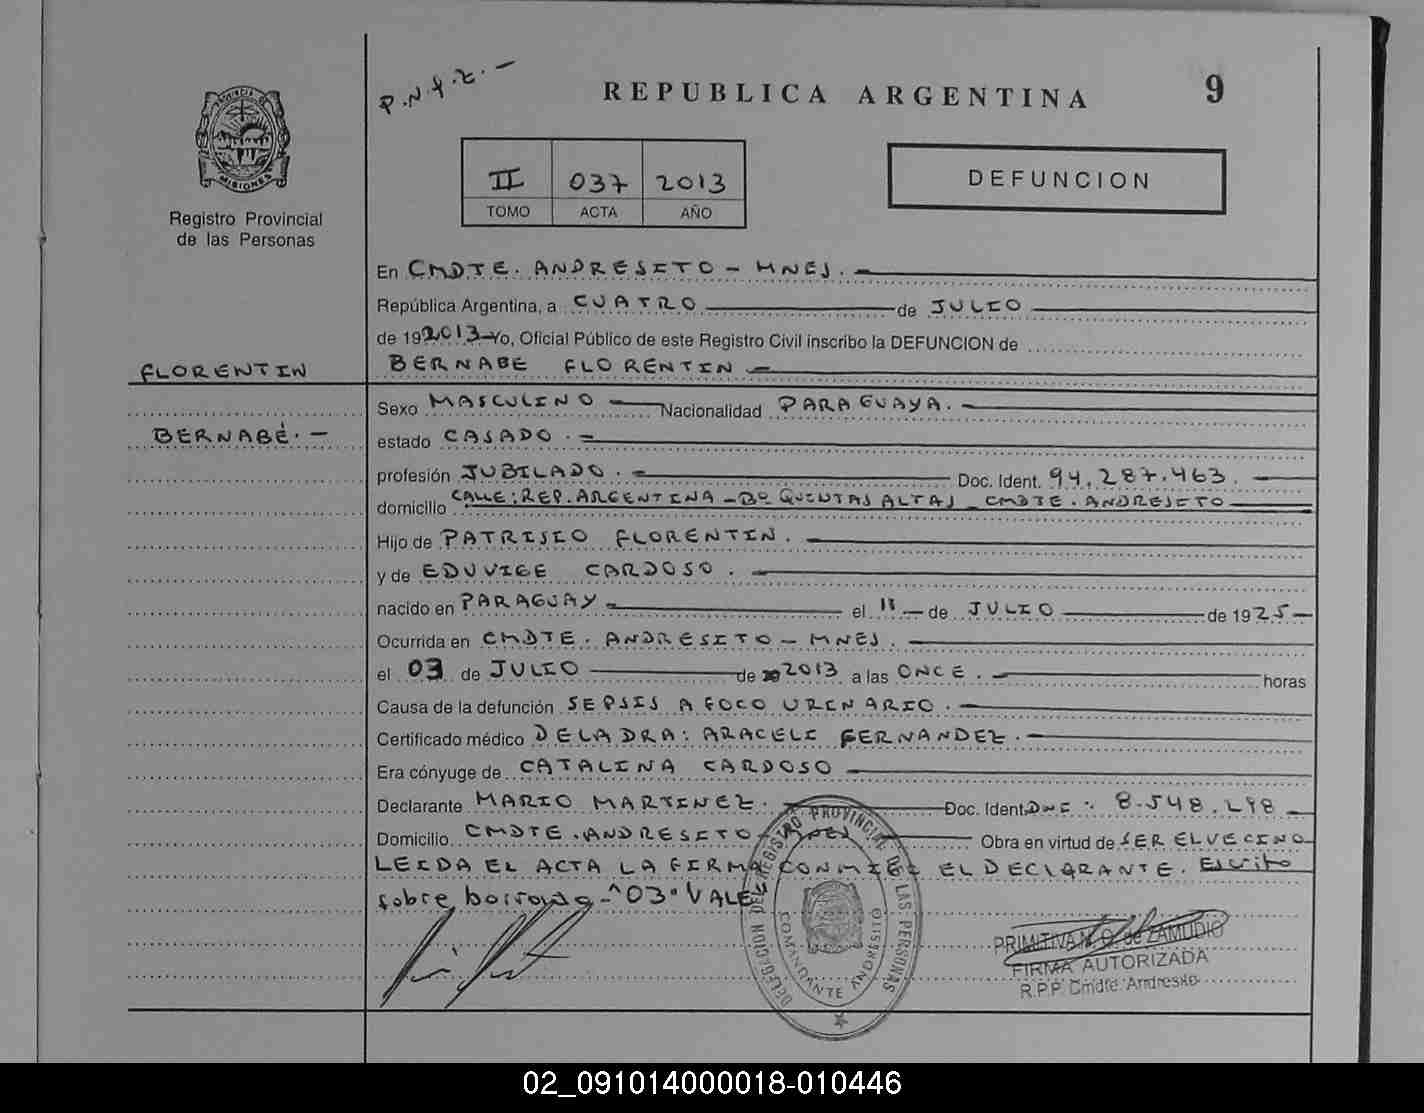 P.N.f.z.-
REPUBLICA ARGENTINA
9
PROVINCIA D
MISIONES
Registro Provincial
de las Personas
II 037 2013
TOMO ACTA AÑO
DEFUNCION
En CMDTE. ANDRESITO - MNES.
República Argentina, a CUATRO de JULIO
de 192013 Yo, Oficial Público de este Registro Civil inscribo la DEFUNCION de
FLORENTIN
BERNABE FLORENTIN
BERNABÉ.-
Sexo MASCULINO Nacionalidad PARAGUAYA.
estado CASADO.
profesión JUBILADO. Doc. Ident. 94.287.463.
domicilio CALLE: REP. ARGENTINA - Bº QUINTAS ALTAS - CMDTE. ANDRESITO
Hijo de PATRISIO FLORENTIN.
y de EDUVIGE CARDOSO.
nacido en PARAGUAY el 11 de JULIO de 1925
Ocurrida en CMDTE. ANDRESITO - MNES.
el 03 de JULIO de 2013 a las ONCE. horas
Causa de la defunción SEPSIS A FOCO URINARIO.
Certificado médico DE LA DRA: ARACELI FERNANDEZ.
Era cónyuge de CATALINA CARDOSO
Declarante MARIO MARTINEZ. Doc. Ident. DNI: 8.548.298
Domicilio CMDTE. ANDRESITO - MNES Obra en virtud de SER EL VECINO
LEIDA EL ACTA LA FIRMA CONMIGO EL DECLARANTE. Escrito
sobre borrado - "03" VALE
DELEGACION DEL REGISTRO PROVINCIAL DE LAS PERSONAS
COMANDANTE ANDRESITO
PRIMITIVA N. G. de ZAMUDIO
FIRMA AUTORIZADA
R.P.P. Cmdte. Andresito
02_091014000018-010446